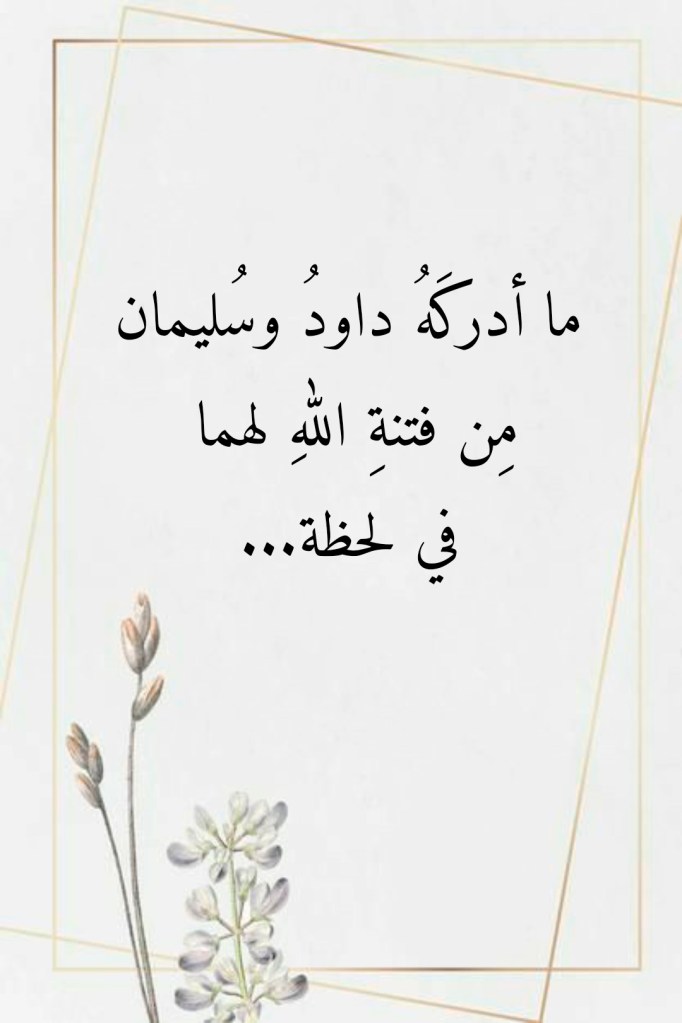 ما أدركَهُ داودُ وسُليمان
مِن فتنةِ اللهِ لهما
في لحظة...